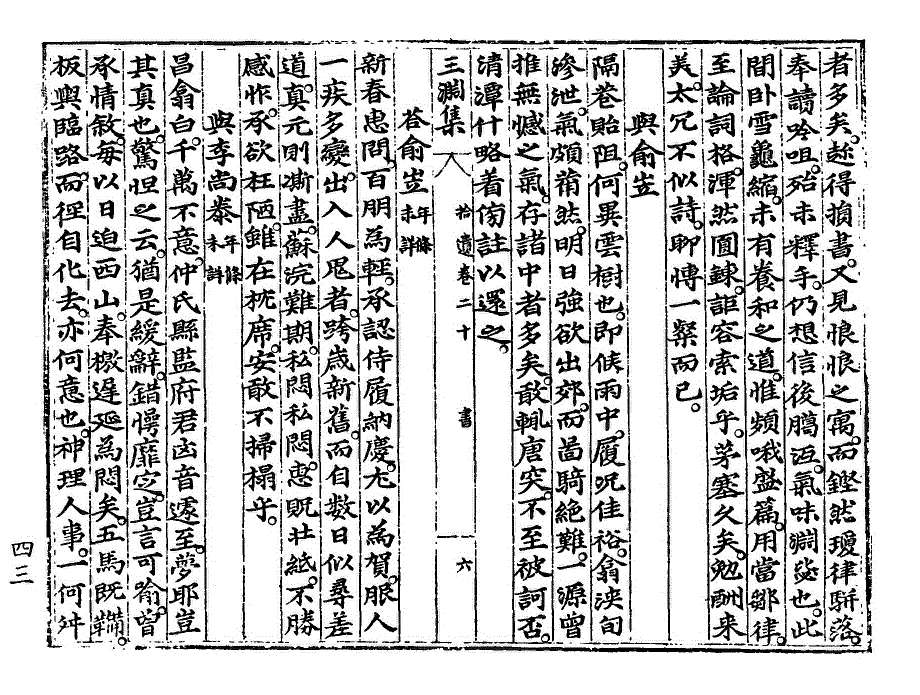 者多矣。趂得損書。又見悢悢之寓。而鏗然瓊律騈落。
奉讀吟咀。殆未釋手。仍想信後臈沍。氣味淵毖也。此
間臥雪龜縮。未有養和之道。惟頻哦盛篇。用當鄒律。
至論詞格。渾然圓鍊。詎容索垢乎。茅塞久矣。勉酬來
美。太冗不似詩。聊博一粲而已。
與俞岦
隔巷貽阻。何異雲樹也。卽候雨中。履況佳裕。翁浹旬
滲泄。氣頗薾然。明日強欲出郊。而啚騎絶難。一源曾
推無憾之氣。存諸中者多矣。敢輒唐突。不至被訶否。
淸潭什略着傍註以還之。
三淵集
拾遺卷二十
書
六
答俞岦 年條未詳
新春惠問。百朋爲輕。承認侍履納慶。尤以爲賀。服人
一疾多變。出入人鬼者。跨歲新舊。而自數日似尋差
道。眞元則澌盡。蘇浣難期。私悶私悶。惠貺壯紙。不勝
感怍。承欲枉陋。雖在枕席。安敢不掃榻乎。
與李尙泰 年條未詳
昌翕白。千萬不意。仲氏縣監府君凶音遽至。夢耶豈
其眞也。驚怛之云。猶是緩辭。錯愕靡定。豈言可喩。曾
承情敍。每以日迫西山。奉檄遲延爲悶矣。五馬旣鞴。
板輿臨路。而徑自化去。亦何意也。神理人事。一何舛
四三